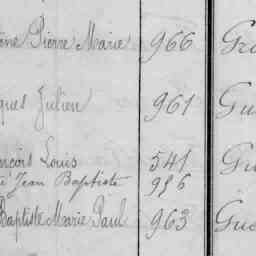 Pierre Marie 966 Gro
ques Julien 961 Gu
ncois Louis 541 Gu
Jean Baptiste 956
Baptiste Marie Paul 963 Gue